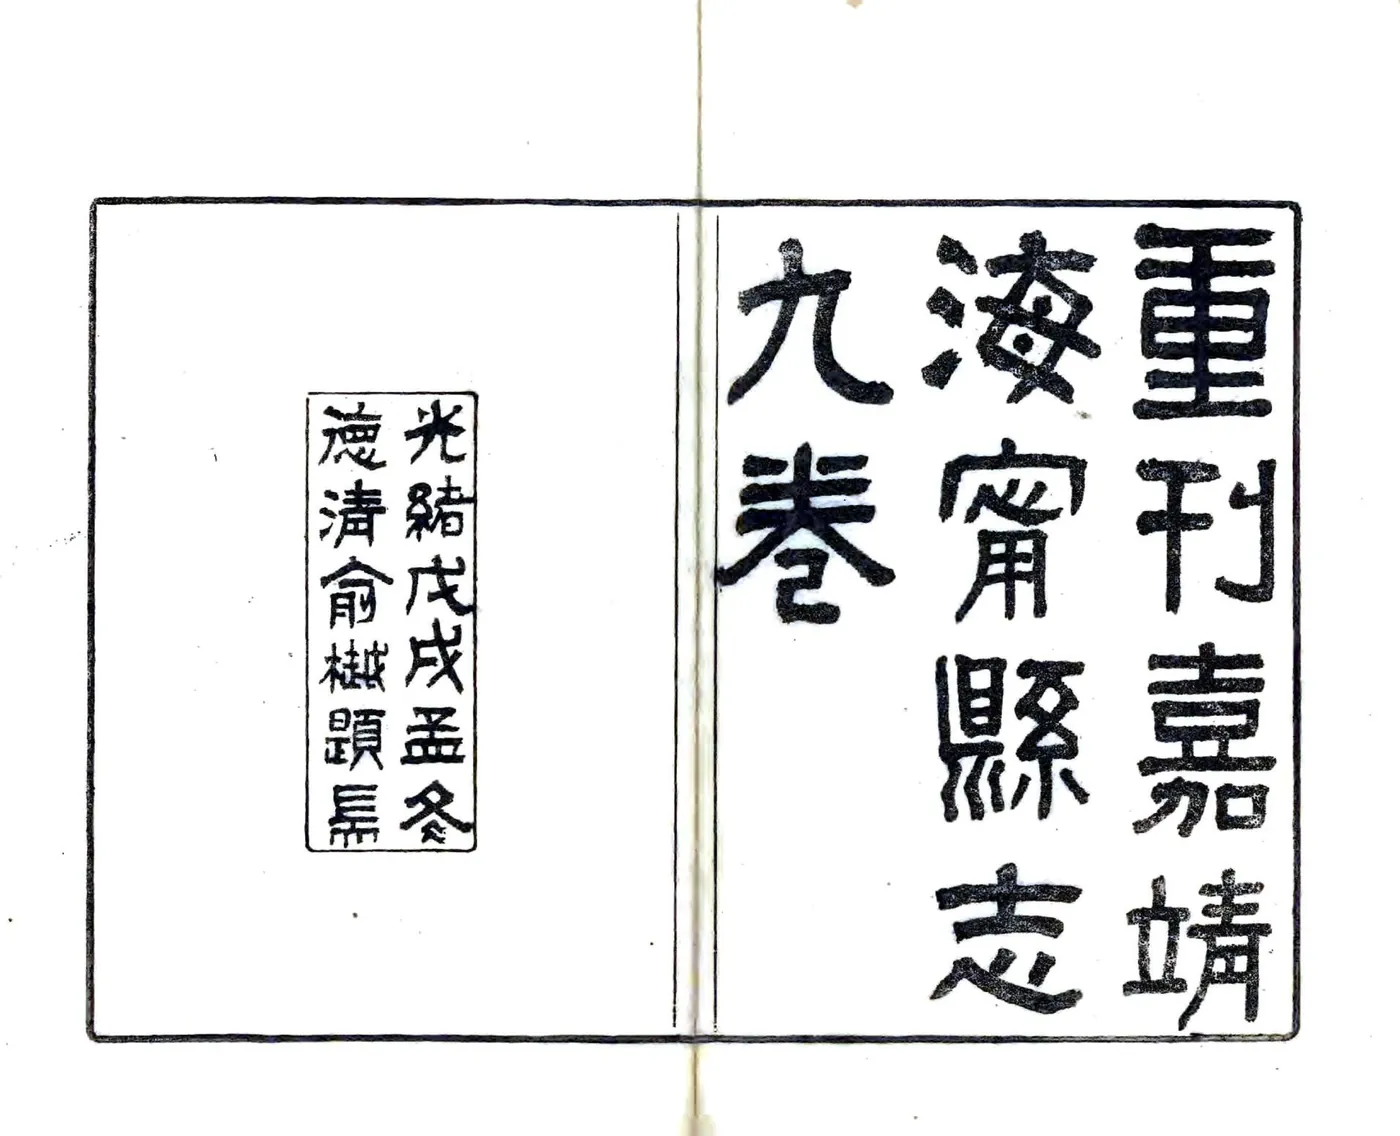 重刊嘉靖
海甯縣志
九卷
光緒戊戌孟冬
德清俞樾題耑